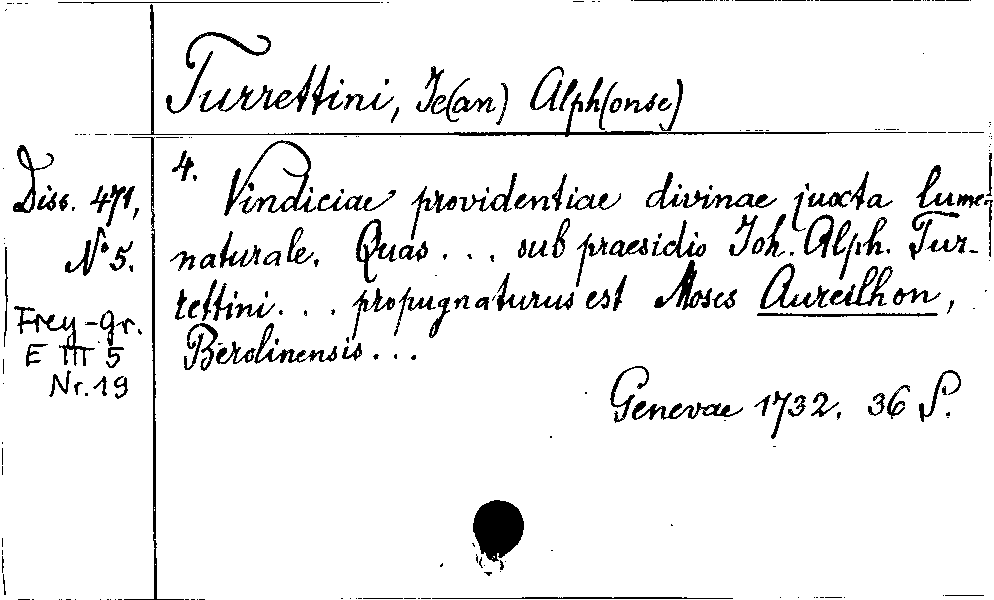 Turrettini, Je(an) Alph(onse)
4.
Diss. 471,
N° 5.
Frey-Gr.
E III 5
Nr. 19
Vindiciae providentiae divinae juxta lume-
naturale. Quas ... sub praesidio Joh. Alph. Tur-
rettini ... propugnaturus est Moses Aureilhon,
Berolinensis ...
Genevae 1732. 36 S.